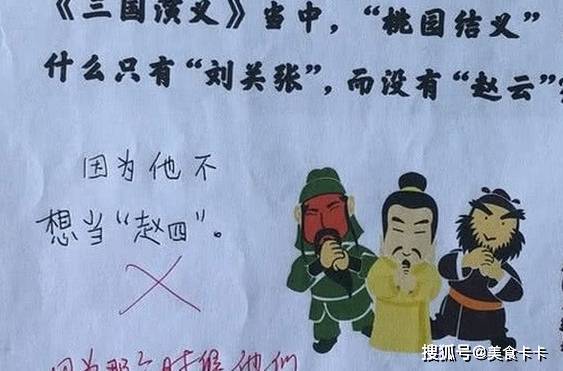 《三国演义》当中，“桃园结义”
什么只有“刘关张”，而没有“赵云”
因为他不
想当“赵四”。
因为那个时候他们
搜狐号@美食卡卡